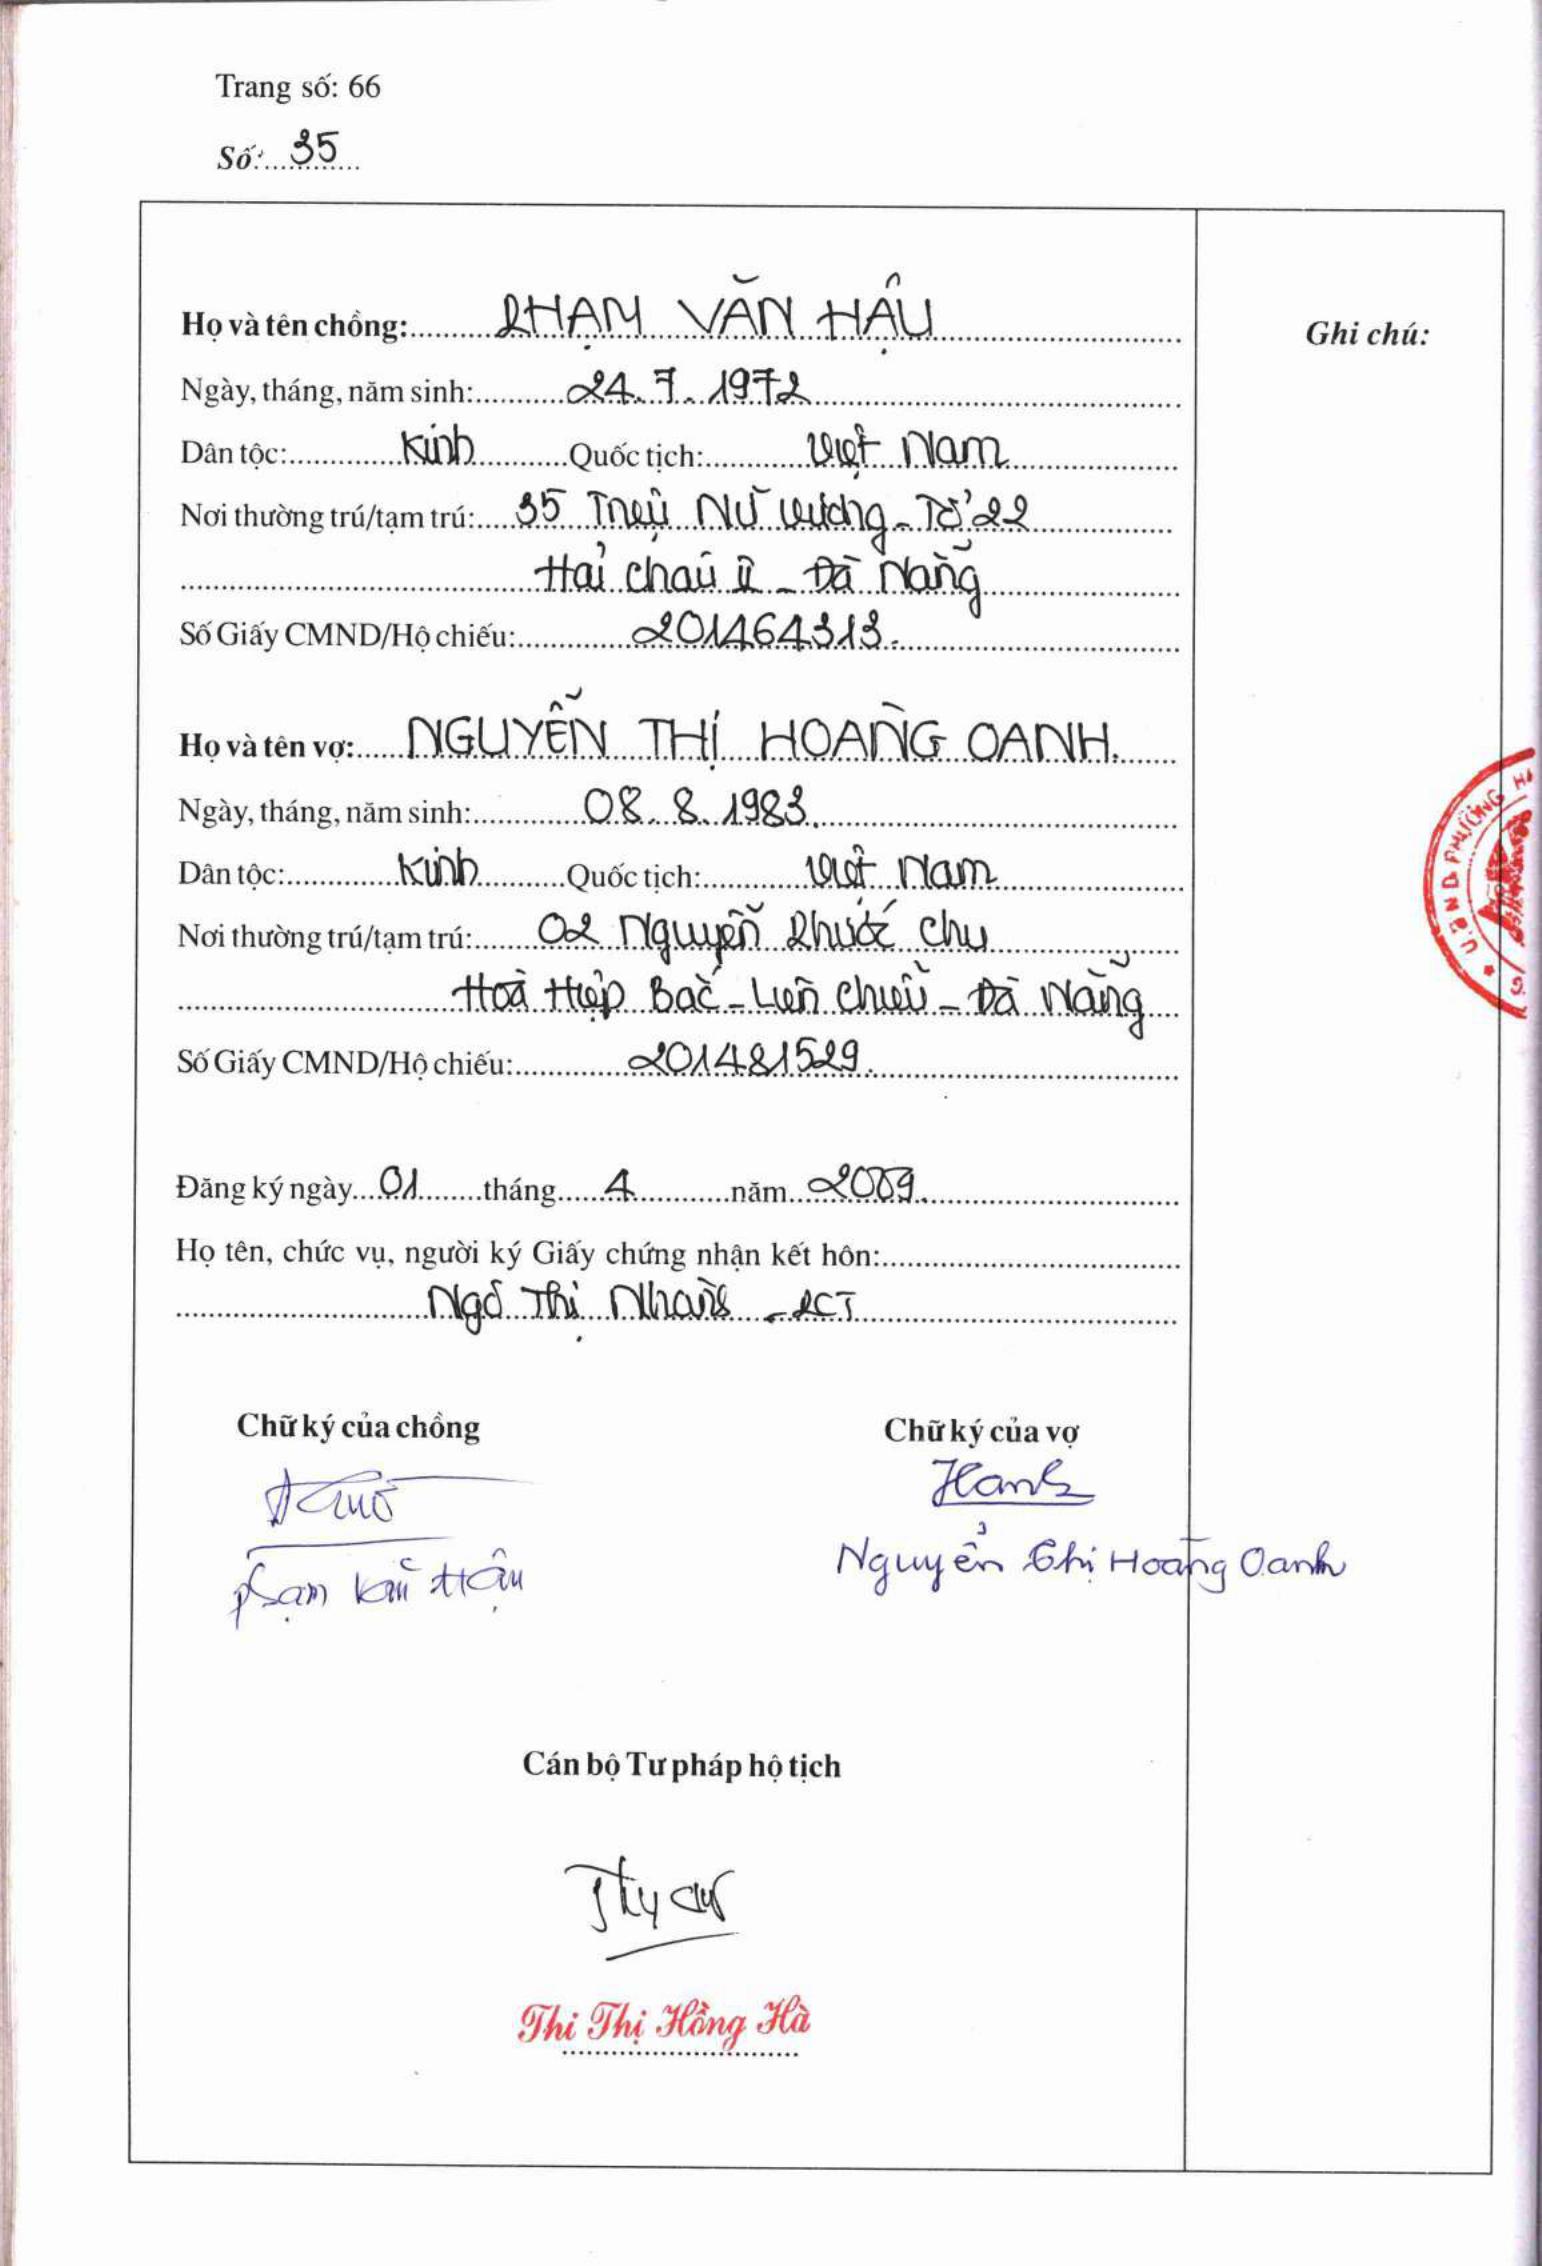 Trang số: 66
Số: 35
Họ và tên chồng: PHẠM VĂN HẬU
Ghi chú:
Ngày, tháng, năm sinh: 24.7.1972
Dân tộc: Kinh Quốc tịch: Việt Nam
Nơi thường trú/tạm trú: 35 Triệu Nữ Vương - Tổ 22
Hải Châu II - Đà Nẵng
Số Giấy CMND/Hộ chiếu: 201464313.
Họ và tên vợ: NGUYỄN THỊ HOÀNG OANH.
Ngày, tháng, năm sinh: 08.8.1983.
Dân tộc: Kinh Quốc tịch: Việt Nam
Nơi thường trú/tạm trú: 02 Nguyễn Phước Chu
Hoà Hiệp Bắc - Liên Chiểu - Đà Nẵng
Số Giấy CMND/Hộ chiếu: 201481529.
U.B.N.D PHƯỜNG H
Đăng ký ngày 01 tháng 4 năm 2009.
Họ tên, chức vụ, người ký Giấy chứng nhận kết hôn:
Ngô Thị Nhàn - PCT
Chữ ký của chồng Chữ ký của vợ
Phạm Văn Hậu
Nguyễn Thị Hoàng Oanh
Cán bộ Tư pháp hộ tịch
Thi Thị Hồng Hà